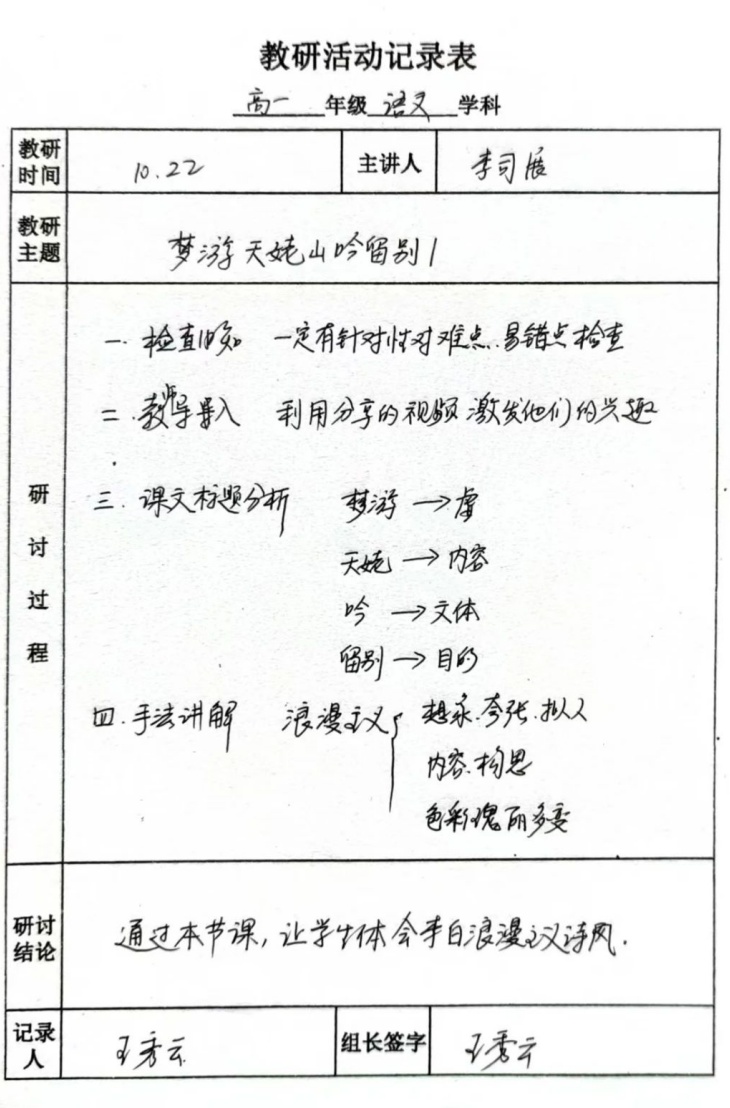 教研活动记录表
高一 年级 语文 学科
教研时间 10.22 主讲人 李司展
教研主题 梦游天姥山吟留别1
研讨过程
一.检查旧知 一定有针对性对难点.易错点检查
二.教师导入 利用分享的视频激发他们的兴趣
三.课文标题分析 梦游→虚
天姥→内容
吟→文体
留别→目的
四.手法讲解 浪漫主义{想象.夸张.拟人
内容.构思
色彩瑰丽多变
研讨结论 通过本节课,让学生体会李白浪漫主义诗风.
记录人 王秀云 组长签字 王秀云